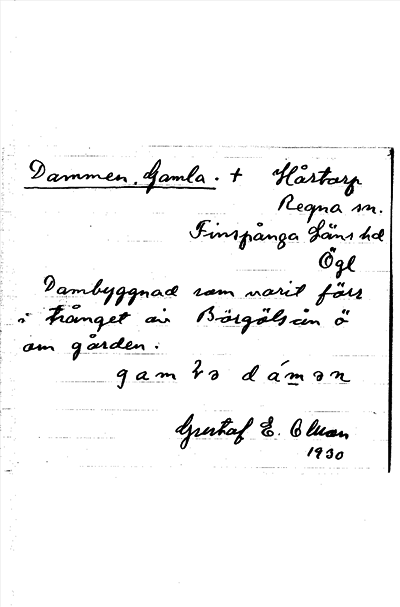 Dammen, Gamla. + Hårstorp
Regna sn.
Finspånga Läns hd
Ögl
Dambyggnad som varit förr
i trånget av Börgöls ån ö
om gården.
gamla dámən
Gustaf E. Olsson
1930